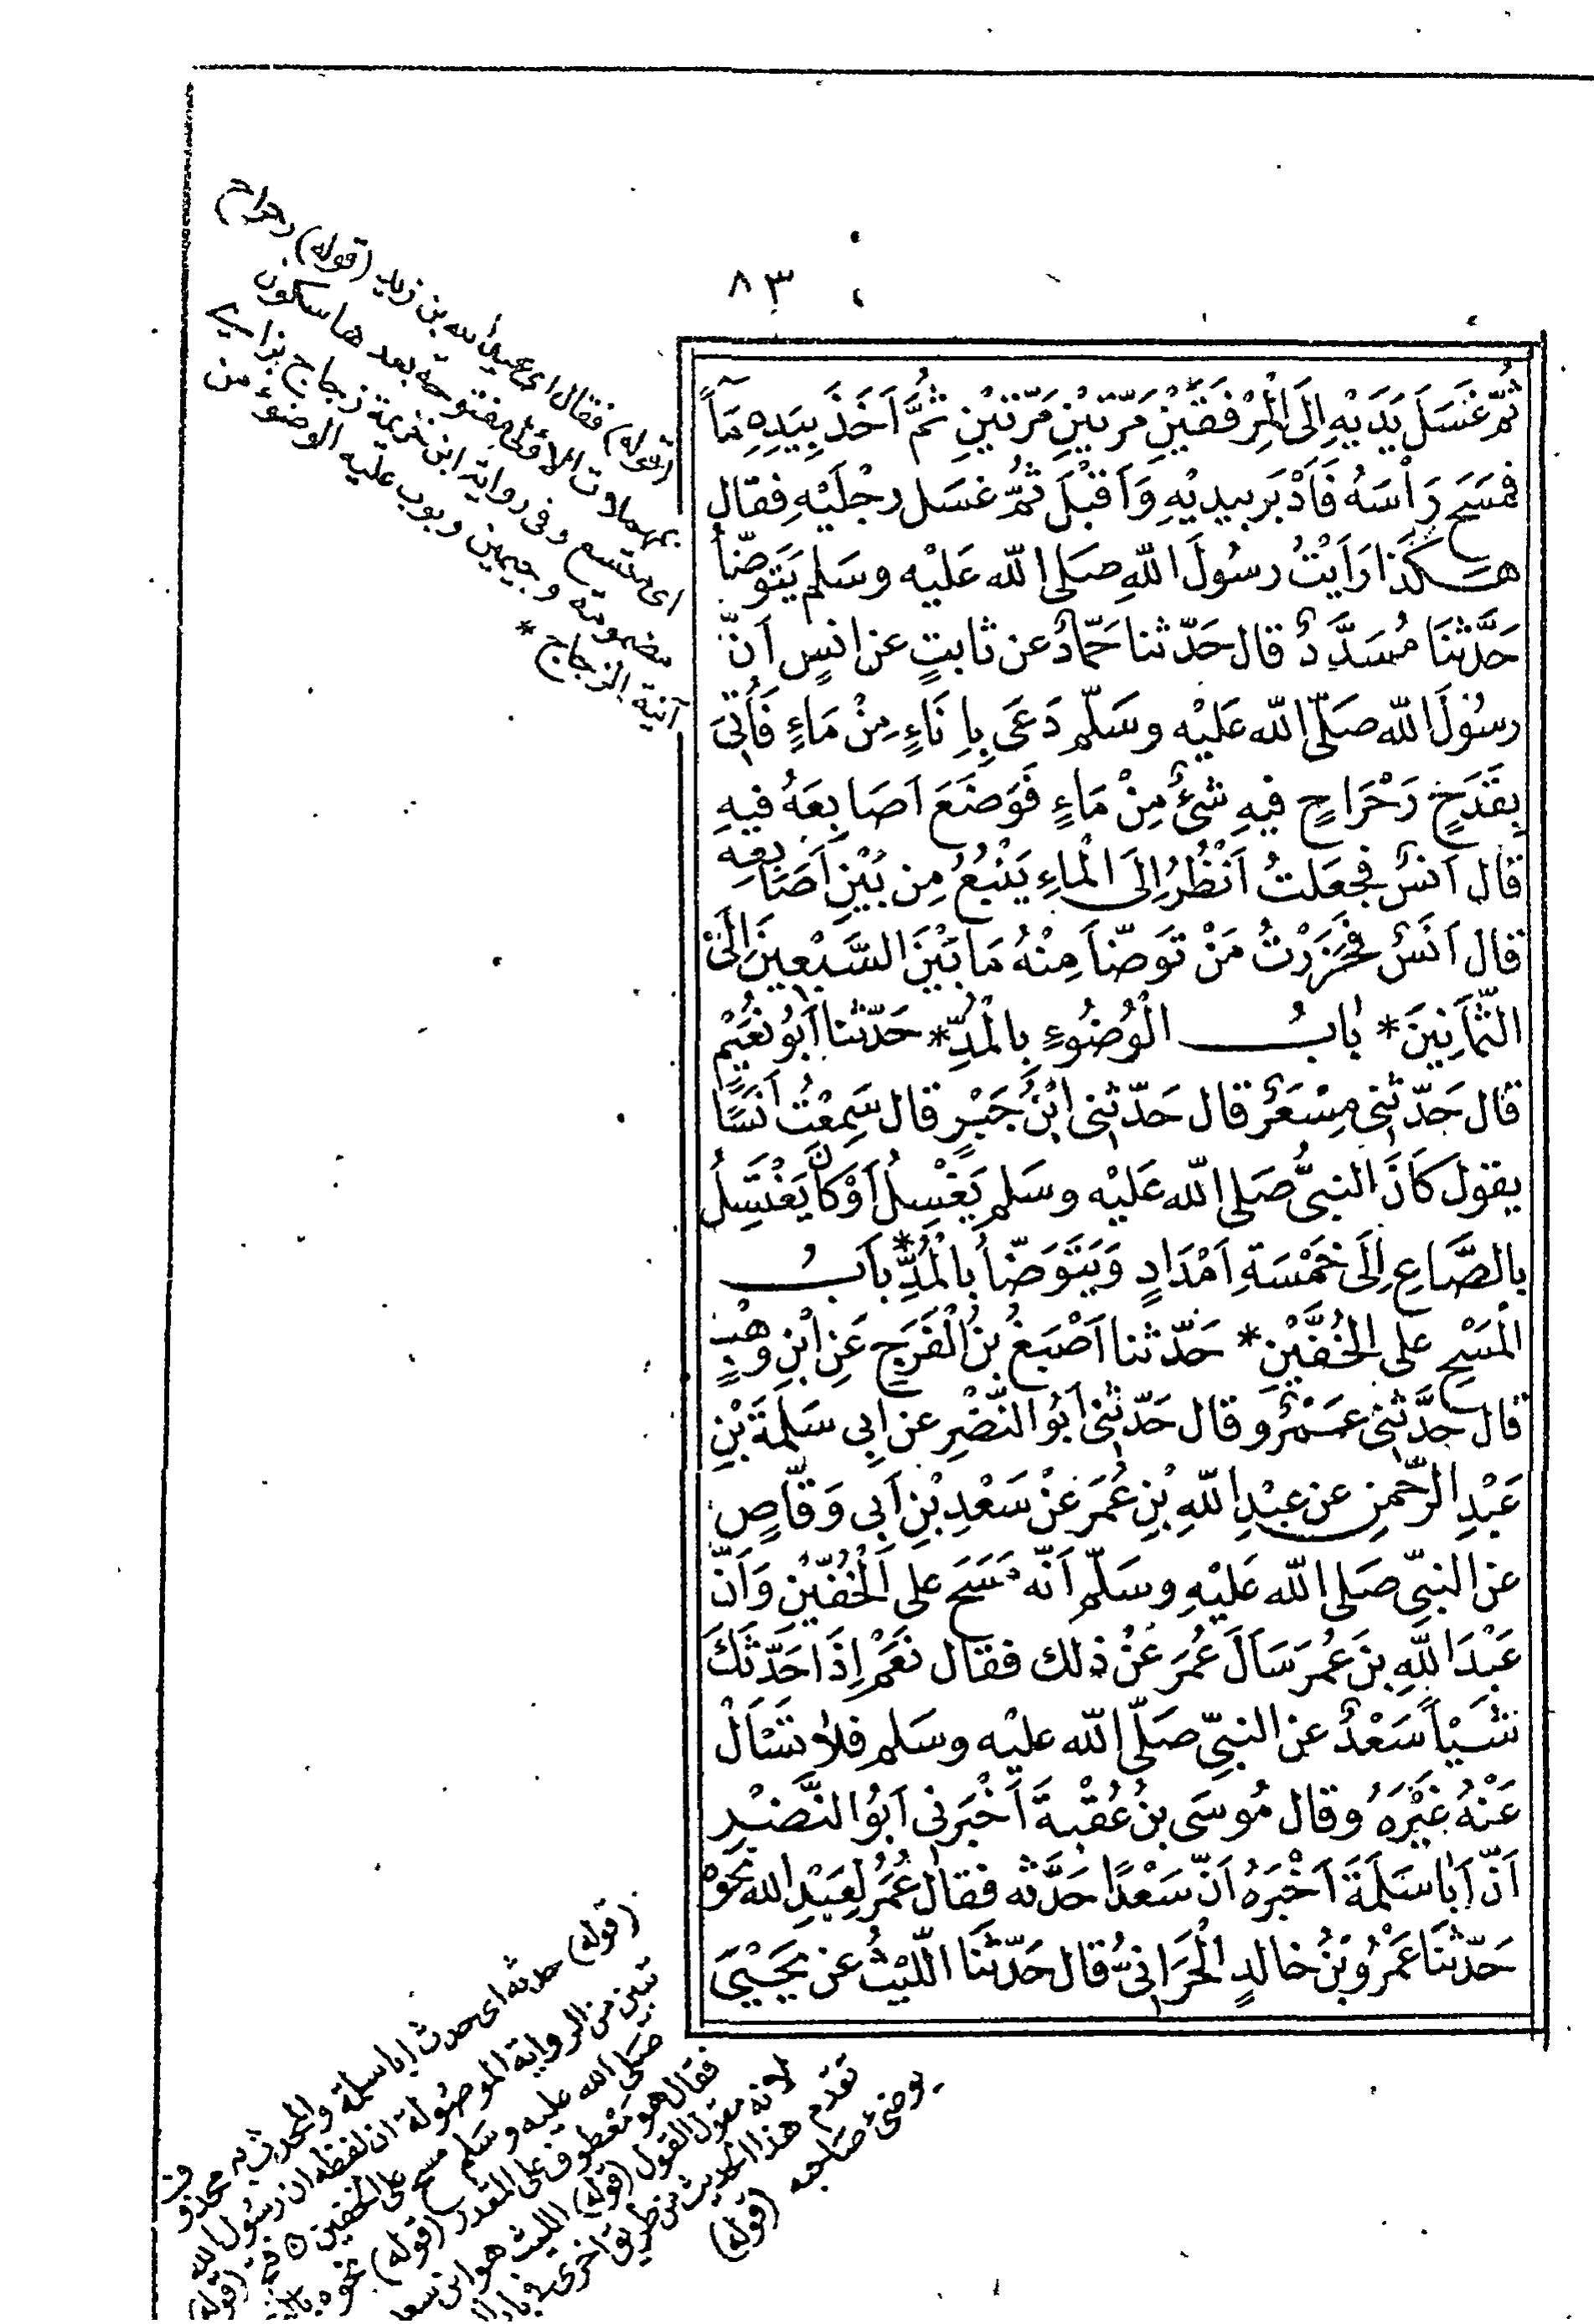 ٨٣
ثُمَّ غَسَلَ يَدَيْهِ اِلَى الْمِرْفَقَيْنِ مَرّتَيْنِ مَرّتَيْنِ ثُمَّ اَخَذَ بِيَدِهِ مَآءً
فَمَسَحَ رَاْسَهُ فَاَدْبَر بيديْهِ وَاَقبْلَ ثُمَّ غسَل رجْلَيْهِ فقال
هٰكَذا رَاَيْتُ رسُولَ اللهِ صَلى الله عَليْه وسَلم يَتَوضّأ
حَدَّثنَا مُسَدَّدٌ قال حَدّثنا حَمّادٌ عن ثابتٍ عن انسٍ اَنّ
رسُولَ الله صَلّى الله عَليْه وسَلّم دَعَى بِاِنَاءٍ مِنْ مَاءٍ فَأُتِيَ
بِقَدَحٍ رَحْرَاحٍ فيهِ شئٌ مِنْ مَاءٍ فَوَضَعَ اَصَابِعَهُ فيهِ
قال اَنسٌ فجعَلتُ اَنْظُرُ اِلَى الْماءِ يَنْبُعُ مِن بَيْنِ اَصَابِعِهِ
قال اَنَسٌ فَحَزَرْتُ مَنْ تَوَضّأَ مِنْهُ مَا بَيْنَ السَّبْعِينَ اِلَى
الثَّمَانِينَ * بابُ الْوُضُوءِ بِالْمُدِّ * حَدّثنا اَبُو نُعَيْمٍ
قال حَدّثنِى مِسْعَرٌ قال حَدّثنِى ابْنُ جَبْرٍ قال سَمِعْتُ اَنَسًا
يقولَ كَانَ النبىُّ صَلى الله عَليْه وسَلم يَغْسِلُ اَوْ كَانَ يَغْتَسِلُ
بِالصَّاعِ اِلَى خَمْسَةِ اَمْدَادٍ وَيَتَوَضّأُ بِالْمُدِّ * بابُ
الْمَسْحِ على الخُفَّيْنِ * حَدّثنا اَصْبَغُ بنُ الْفَرَجِ عَنِ ابْنِ وَهْبٍ
قال حَدَّثنِى عَمْرٌو قال حَدّثنِى اَبُو النَّضْرِ عن ابِى سَلَمَةَ بْنِ
عَبْدِ الرَّحْمنِ عن عبْدِ اللهِ بْنِ عُمَرَ عَنْ سَعْدِ بْنِ اَبِى وَقّاصٍ
عن النبىِّ صَلى الله عَليْهِ وسَلّم اَنّه مَسَحَ على الْخُفَّيْنِ وَاَنّ
عَبْدَ اللهِ بنَ عُمَرَ سَاَلَ عُمَرَ عَنْ ذلك فقال نَعَمْ اِذَا حَدّثَكَ
شَيْأً سَعْدٌ عن النبىِّ صَلّى الله عليْه وسَلم فلا تَسْاَلْ
عَنْهُ غَيْرَهُ وقال مُوسَى بنُ عُقْبةَ اَخْبَرَنى اَبُو النَّضْرِ
اَنّ اَبَا سَلَمَةَ اَخْبَرَهُ اَنّ سَعْدًا حَدَّثه فقال عُمَرُ لِعَبْدِ الله نَحْوَهُ
حَدّثنَا عَمْرُو بْنُ خالدٍ الْحَرَانىُّ قال حَدّثنَا اللّيْثُ عن يَحْيَى
(قوله) فقال اى عبد الله بن زيد (قوله) رحراح
بمهملات الأولى مفتوحة بعدها سكون
اى متسع وفى رواية ابن خزيمة زجاج بزاى
مضمومة وجيمين وبوب عليه الوضوء من
آنية الزجاج *
(قوله) حدثه اى حدث ابا سلمة والمحدث به محذوف
تبين من الرواية الموصولة ان لفظه ان رسول الله
صلى الله عليه وسلم مسح على الخفين (قوله)
فقال هو معطوف على المقدر (قوله) نحوه
لانه مقول القول (قوله) الليث هو ابن سعد
تقدم هذا الحديث من طريق اخرى
يوضئ صاحبه (قوله)